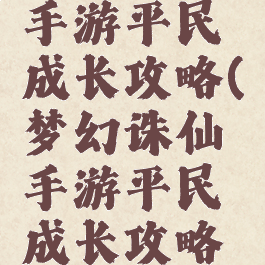 手游平民
成长攻略(
梦幻诛仙
手游平民
成长攻略